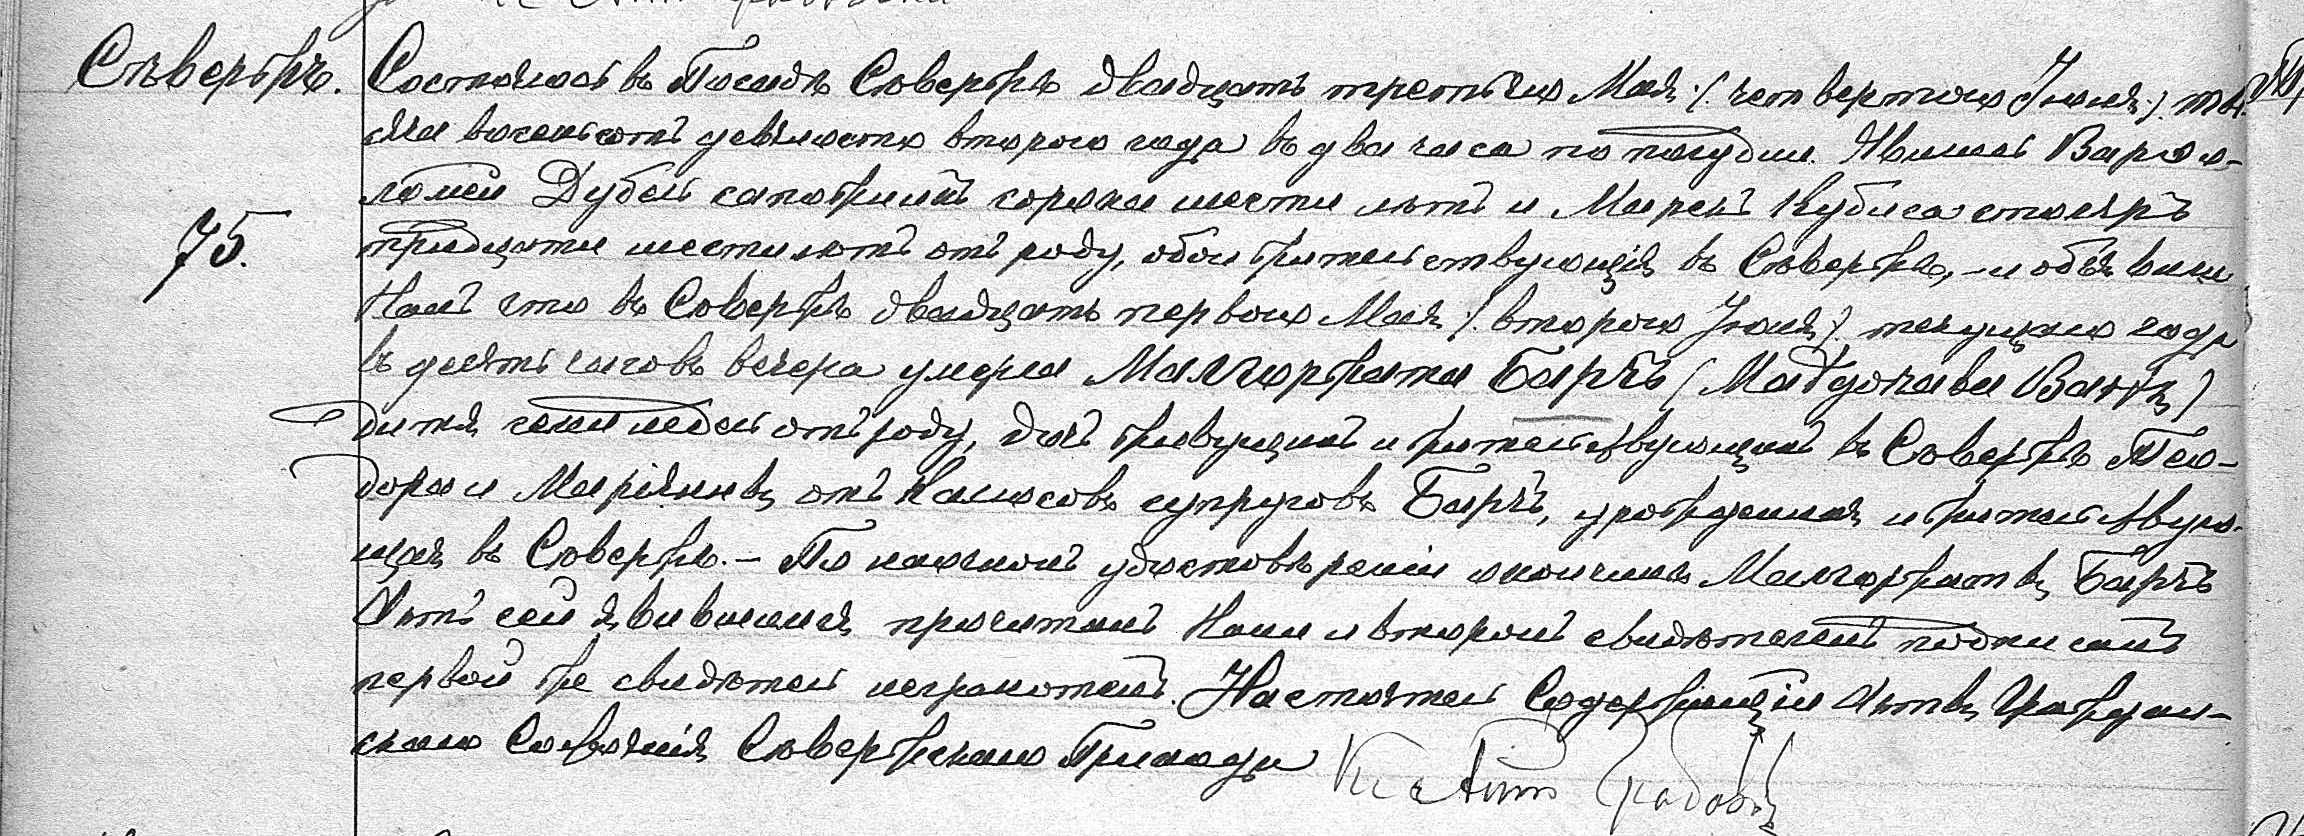 Сѣвержъ.
75.
Состоялось въ Посадѣ Сѣвержѣ двадцать третьяго Мая /: четвертаго Іюня :/ ты-
сяча восемьсотъ девяносто второго года въ два часа по полудни. Явились Варѳо-
ломей Дубель сапожникъ сорока шести лѣтъ и Марекъ Кубиса столяръ
тридцати шести лѣтъ отъ роду, обои жительствующіе въ Сѣвержѣ, – и объявили
Намъ что въ Сѣвержѣ двадцать перваго Мая /: второго Іюня :/ текущаго года
въ десять часовъ вечера умерла Малгоржата Барчъ
дитя семи недель отъ роду, дочь живущихъ и жительствующихъ въ Сѣвержѣ Тео-
дора и Маріянны отъ супруговъ Барчъ, урожденная и жительствую-
щая въ Сѣвержѣ. – По наочномъ удостовѣреніи о кончинѣ Малгоржаты Барчъ
Актъ сей явившимся прочитанъ Нами и вторымъ свидѣтелемъ подписанъ
первой же свидѣтель неграмотенъ. Настоятель Содержащій Акты Граждан-
скаго Состоянія Сѣвержскаго Прихода